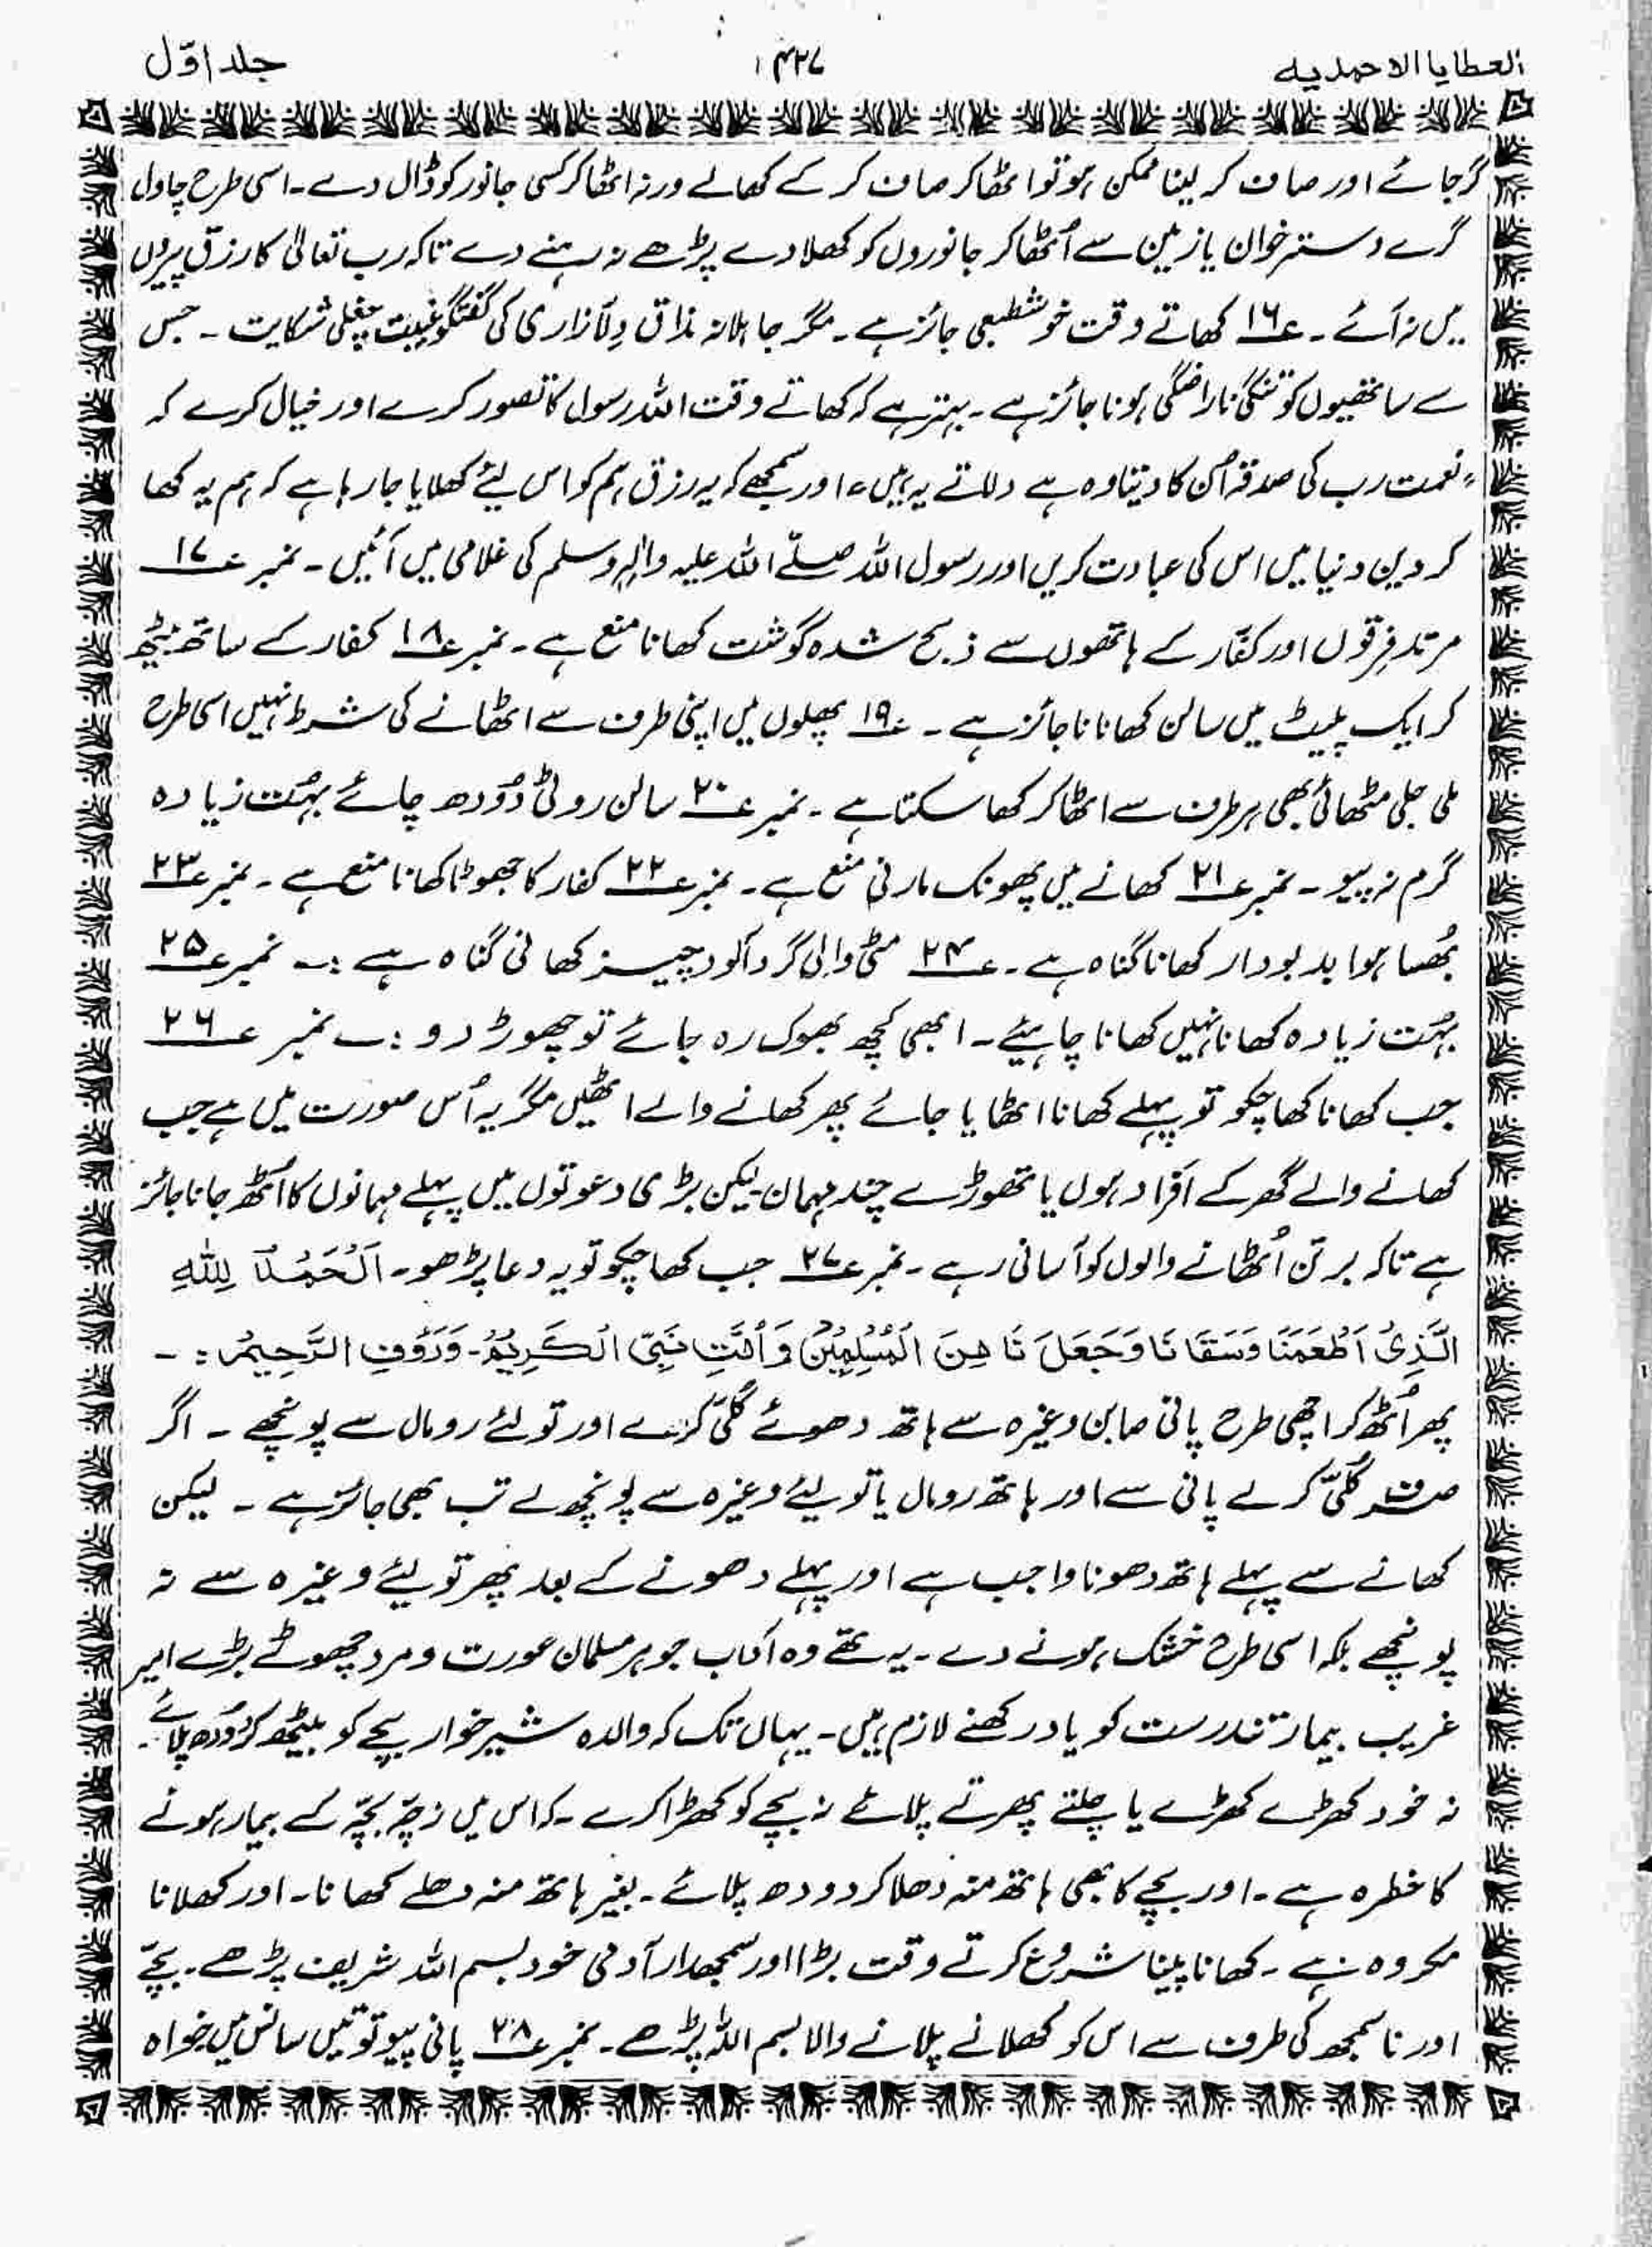 العطایا الاحمدیہ
۴۲۷
جلد اوّل
گر جائے اور صاف کر لینا ممکن ہو تو اٹھا کر صاف کر کے کھالے ورنہ اٹھا کر کسی جانور کو ڈال دے۔ اسی طرح چاول
گرے دسترخوان یا زمین سے اُٹھا کر جانوروں کو کھلا دے پڑھے نہ رہنے دے تاکہ رب تعالیٰ کا رزق پیروں
میں نہ آئے۔ ؏۱۶ کھاتے وقت خوشطبعی جائز ہے۔ مگر جاہلانہ مذاق دِلآزاری کی گفتگو غیبت چغلی شکایت۔ جس
سے ساتھیوں کو تنگی ناراضگی ہو ناجائز ہے۔ بہتر ہے کہ کھاتے وقت اللہ رسول کا تصور کرے اور خیال کرے کہ
؞ نعمت رب کی صدقہ اُن کا دیتا وہ ہے دلاتے یہ ہیں، اور سمجھے کہ یہ رزق ہم کو اس لیئے کھلایا جا رہا ہے کہ ہم یہ کھا
کر دین دنیا میں اس کی عبادت کریں اور رسول اللہ صلّے اللہ علیہ والہٖ وسلم کی غلامی میں آئیں۔ نمبر ؏۱۷
مرتد فِرقوں اور کفّار کے ہاتھوں سے ذبح شدہ گوشت کھانا منع ہے۔ نمبر ؏۱۸ کفار کے ساتھ بیٹھ
کر ایک پلیٹ میں سالن کھانا ناجائز ہے۔ ؏۱۹ پھلوں میں اپنی طرف سے اٹھانے کی شرط نہیں اسی طرح
ملی جلی مٹھائی بھی ہر طرف سے اٹھا کر کھا سکتا ہے۔ نمبر ؏۲۰ سالن روٹی دُودھ چائے بہُت زیادہ
گرم نہ پیو۔ نمبر ؏۲۱ کھانے میں پھونک مارنی منع ہے۔ نمبر ؏۲۲ کفار کا جھوٹا کھانا منع ہے۔ نمبر ؏۲۳
بُھسا ہوا بدبودار کھانا گناہ ہے۔ ؏۲۴ مٹی والی گرد آلود چیز کھانی گناہ ہے :۔ نمبر ؏۲۵
بہُت زیادہ کھانا نہیں کھانا چاہیئے۔ ابھی کچھ بھوک رہ جائے تو چھوڑ دو :۔ نمبر ؏۲۶
جب کھانا کھا چکو تو پہلے کھانا اٹھایا جائے پھر کھانے والے اٹھیں مگر یہ اُس صورت میں ہے جب
کھانے والے گھر کے اَفراد ہوں یا تھوڑے چند مہمان لیکن بڑی دعوتوں میں پہلے مہمانوں کا اُٹھ جانا جائز
ہے تاکہ برتن اُٹھانے والوں کو آسانی رہے۔ نمبر ؏۲۷ جب کھا چکو تو یہ دعا پڑھو۔ اَلْحَمْدُ لِلّٰہِ
الَّذِیْ اَطْعَمَنَا وَسَقَانَا وَجَعَلَنَا مِنَ الْمُسْلِمِیْنَ وَاُمَّتِ نَبِیِّ الْکَرِیْمِ۔ وَرَوُفِ الرَّحِیْمِ :۔
پھر اُٹھ کر اچھی طرح پانی صابن وغیرہ سے ہاتھ دھوئے کُلّی کرے اور تولئے رومال سے پونچھے۔ اگر
صرف کُلّی کر لے پانی سے اور ہاتھ رومال یا تولیئے وغیرہ سے پونچھ لے تب بھی جائز ہے۔ لیکن
کھانے سے پہلے ہاتھ دھونا واجب ہے اور پہلے دھونے کے بعد پھر تولیئے وغیرہ سے نہ
پونچھے بلکہ اسی طرح خشک ہونے دے۔ یہ تھے وہ آداب جو ہر مسلمان عورت و مرد چھوٹے بڑے امیر
غریب بیمار تندرست کو یاد رکھنے لازم ہیں۔ یہاں تک کہ والدہ شیر خوار بچے کو بیٹھ کر دُودھ پلائے۔
نہ خود کھڑے کھڑے یا چلتے پھرتے پلائے نہ بچے کو کھڑا کرے۔ کہ اس میں زچّہ بچّہ کے بیمار ہونے
کا خطرہ ہے۔ اور بچے کا بھی ہاتھ منہ دھلا کر دودھ پلائے۔ بغیر ہاتھ منہ دھلے کھانا۔ اور کھلانا
مکروہ ہے۔ کھانا پینا شروع کرتے وقت بڑا اور سمجھدار آدمی خود بسم اللہ شریف پڑھے۔ بچّے
اور ناسمجھ کی طرف سے اس کو کھلانے پلانے والا بسم اللہ پڑھے۔ نمبر ؏۲۸ پانی پیو تو تین سانس میں خواہ